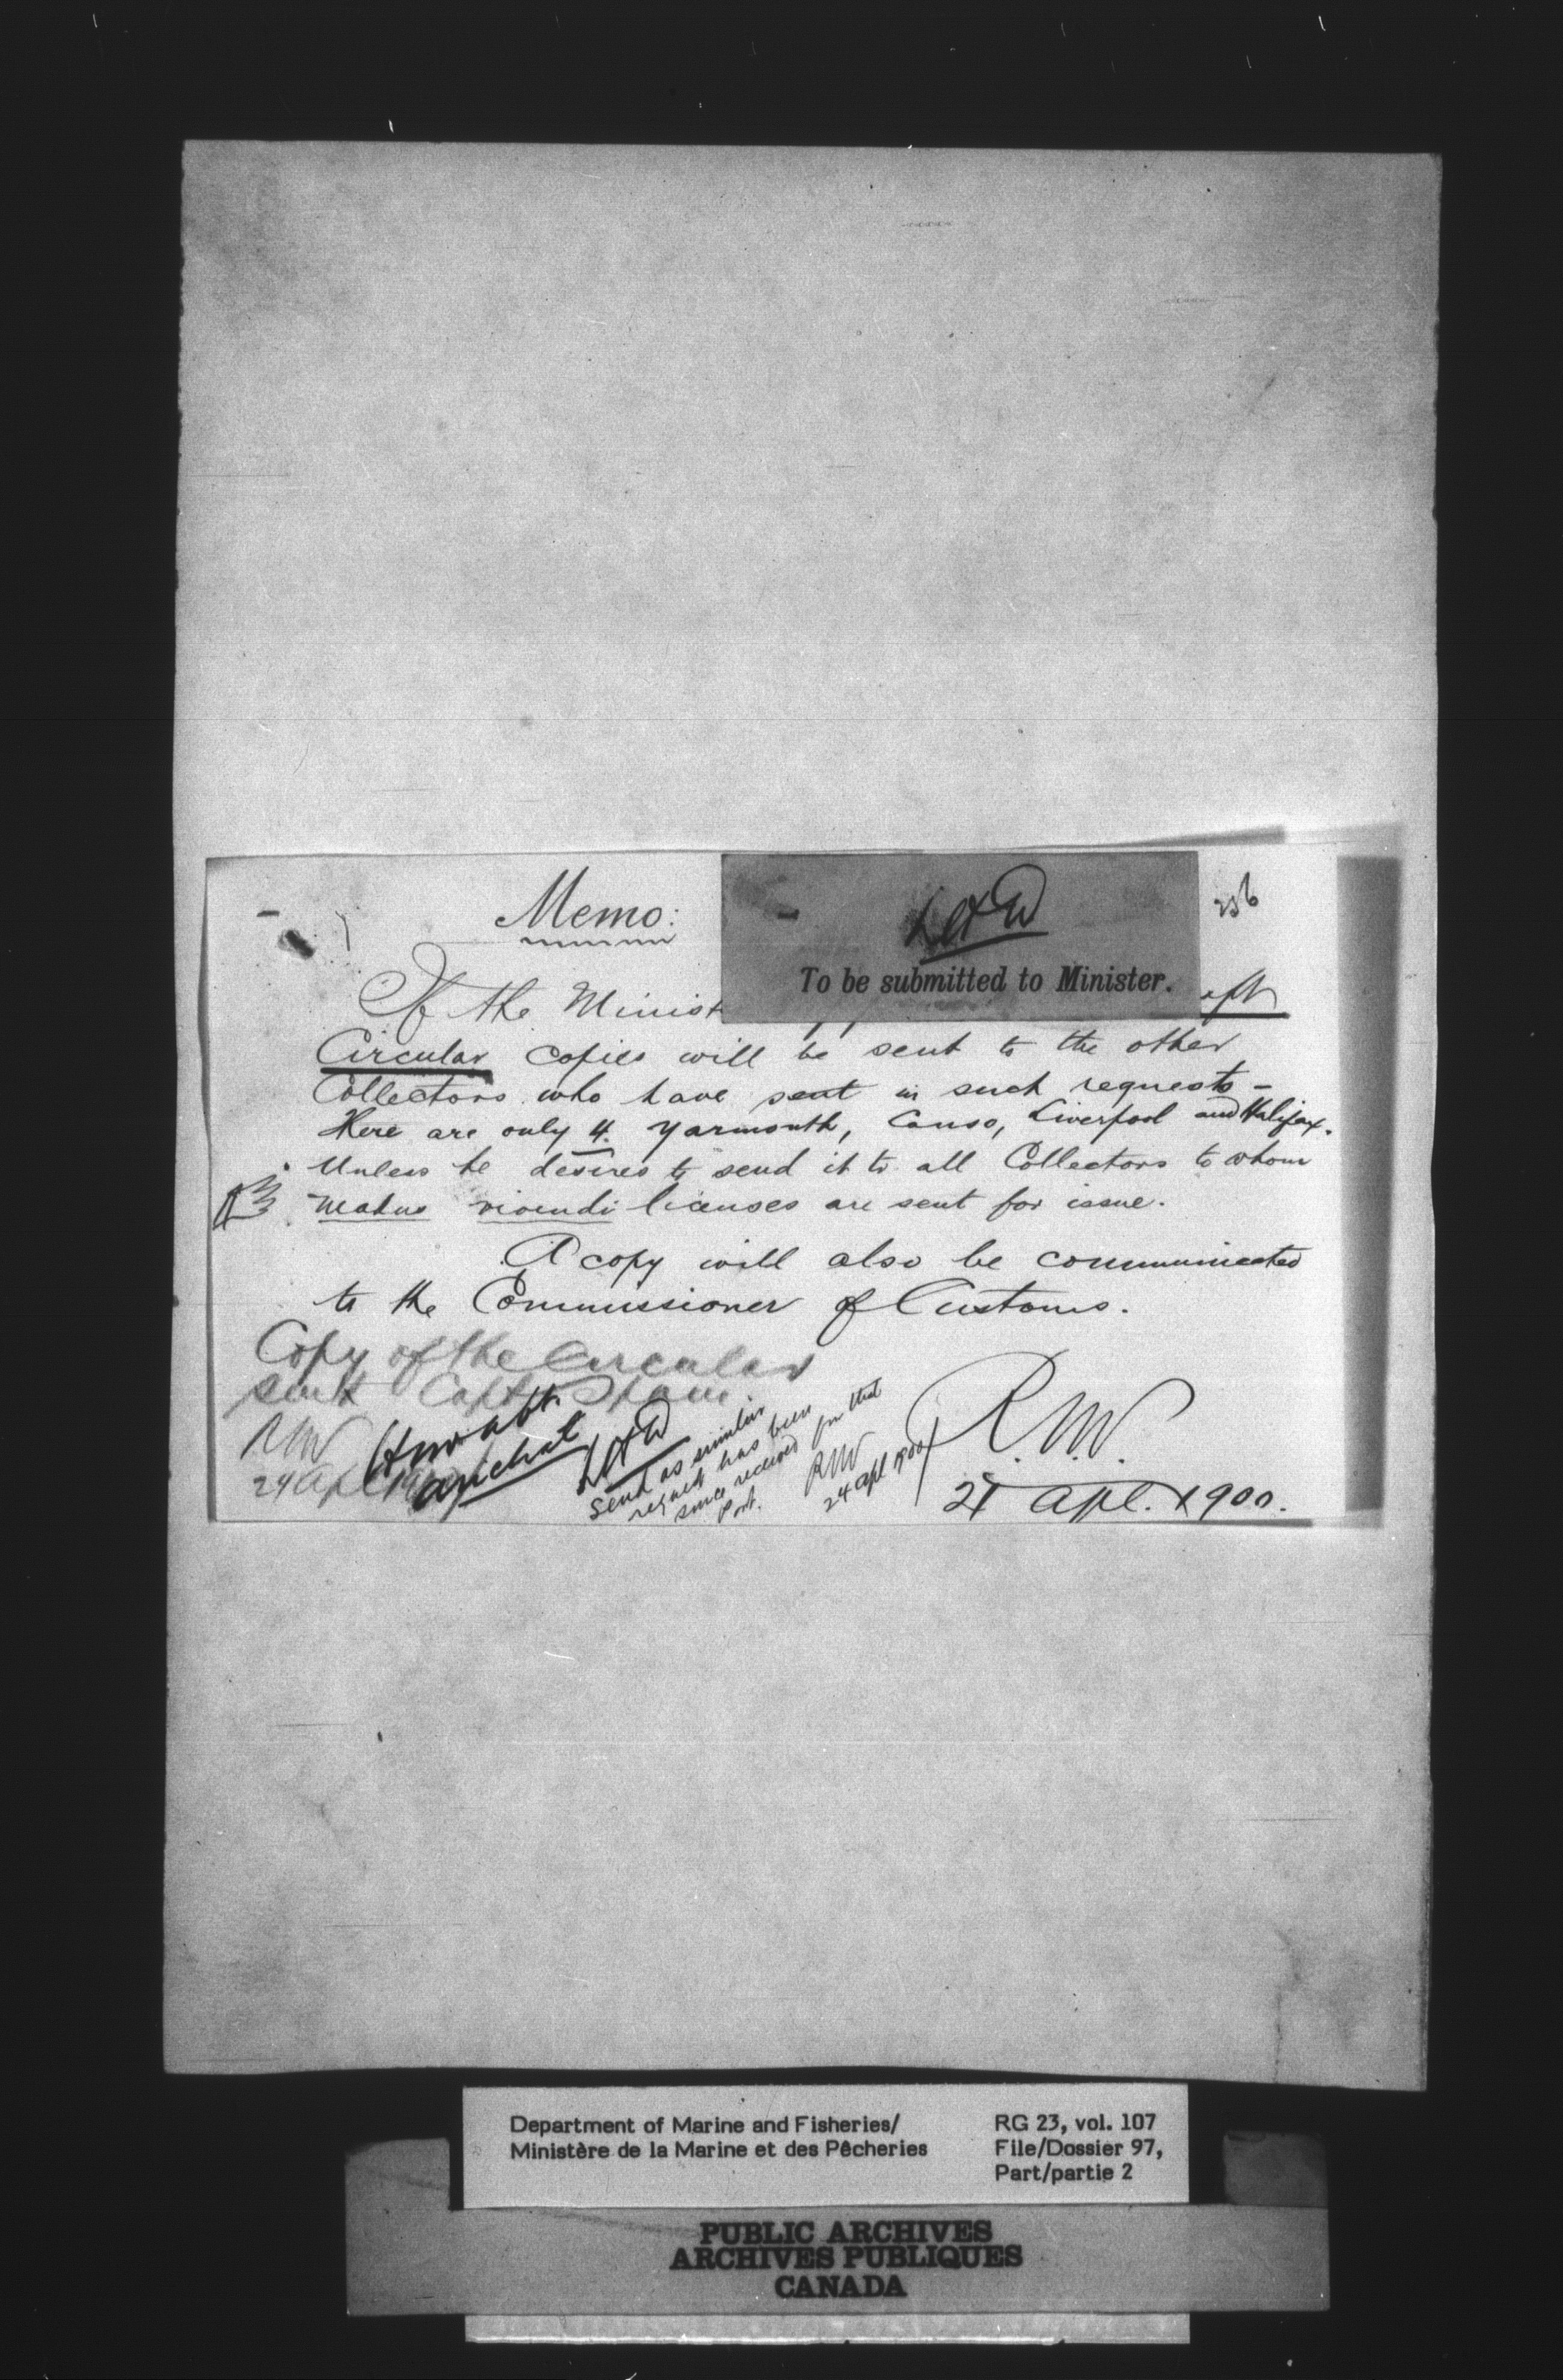 Memo:
L H D
To be submitted to Minister.
256
If the Minist
aft
Circular copies will be sent to the other
Collectors who have sent in such requests –
Here are only 4. Yarmouth, Canso, Liverpool and Halifax.
Unless he desires to send it to all Collectors to whom
modus vivendi licenses are sent for issue.
A copy will also be communicated
to the Commissioner of Customs.
Copy of the Circular
sent Capt. Spain.
RNV
24 Apl 1900
How abt.
Arichat
L H D
Send as similar
request has been
since received for that
Port.
RNV
24 Apl 1900
R.N.V.
21 Apl. 1900.
Department of Marine and Fisheries/
Ministère de la Marine et des Pêcheries
RG 23, vol. 107
File/Dossier 97,
Part/partie 2
PUBLIC ARCHIVES
ARCHIVES PUBLIQUES
CANADA